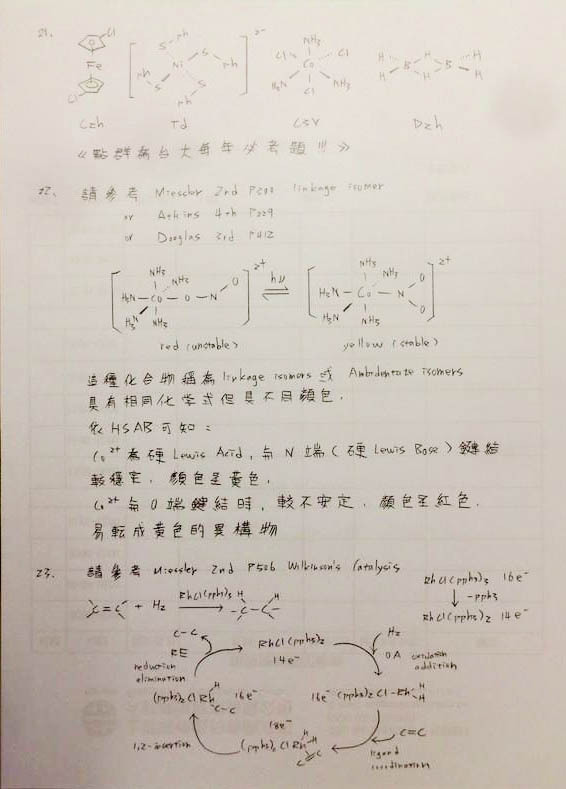 21.
Cl
Fe
Cl
[Ni(Sph)4]2-
NH3
Cl
Cl
Co
H3N
NH3
Cl
H H H
B B
H H H
C2h
Td
C3V
D2h
《點群為台大每年必考題!!!》
22. 請參考 Miessler 2nd P200 linkage isomer
or Atkins 4th P229
or Douglas 3rd P412
NH3
NH3
O
2+
hν
NH3
NH3
O
2+
H3N — Co — O — N
H3N — Co — N
O
H3N
NH3
H3N
NH3
red (unstable)
yellow (stable)
這種化合物稱為 linkage isomers 或 Ambidentate isomers
具有相同化學式但具不同顏色.
依 HSAB 可知:
Co2+ 為硬 Lewis Acid, 與 N 端 (硬 Lewis Base) 鍵結
較穩定. 顏色呈黃色.
Co2+ 與 O 端鍵結時, 較不安定. 顏色呈紅色.
易転成黄色的異構物
23. 請參考 Miessler 2nd P506 Wilkinson's Catalysis
RhCl(pph3)3 16e-
-pph3
RhCl(pph3)2 14e-
C=C + H2
RhCl(pph3)3
H H
-C-C-
C-C
RE
reduction
elimination
RhCl(pph3)2
14e-
H2
OA
oxidation
addition
(pph3)2 Cl Rh
H
C-C
16e-
16e- (pph3)2 Cl-Rh
H
H
1,2-insertion
18e-
(pph3)2 Cl Rh
H
H
C=C
C=C
ligand
coordination